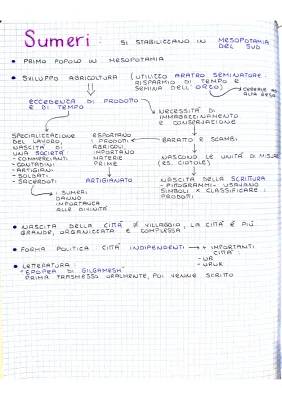 Sumeri: SI STABILIZZANO IN MESOPOTAMIA
DEL SUD
• PRIMO POPOLO IN MESOPOTAMIA
• SVILUPPO AGRICOLTURA (UTILIZZO ARATRO SEMINATORE:
RISPARMIO DI TEMPO E
SEMINA DELL'ORZO)
CEREALE AD
ALTA RESA
ECCEDENZA DI PRODOTTO
E DI TEMPO
NECESSITÀ DI
IMMAGAZZINAMENTO
E CONSERVAZIONE
SPECIALIZZAZIONE
DEL LAVORO,
NASCITA DI
UNA SOCIETÀ
- COMMERCIANTI
- CONTADINI
- ARTIGIANI
- SOLDATI
- SACERDOTI
ESPORTANO
I PRODOTTI
AGRICOLI,
IMPORTANO
MATERIE
PRIME
ARTIGIANATO
BARATTO E SCAMBI
NASCONO LE UNITÀ DI MISURA
(ES. CIOTOLE)
NASCITA DELLA SCRITURA
- PITTOGRAMMI - USAVANO
SIMBOLI X CLASSIFICARE I
PRODOTTI
I SUMERI
DANNO
IMPORTANZA
ALLE DIVINITÀ
• NASCITA DELLA CITTÀ ≠ VILLAGGIO, LA CITTÀ È PIÙ
GRANDE, ORGANIZZATA E COMPLESSA
• FORMA POLITICA: CITTÀ INDIPENDENTI → + IMPORTANTI
CITTÀ:
- UR
- URUK
• LETTERATURA:
"EPOPEA DI GILGAMESH"
PRIMA TRASMESSO ORALMENTE, POI VENNE SCRITTO